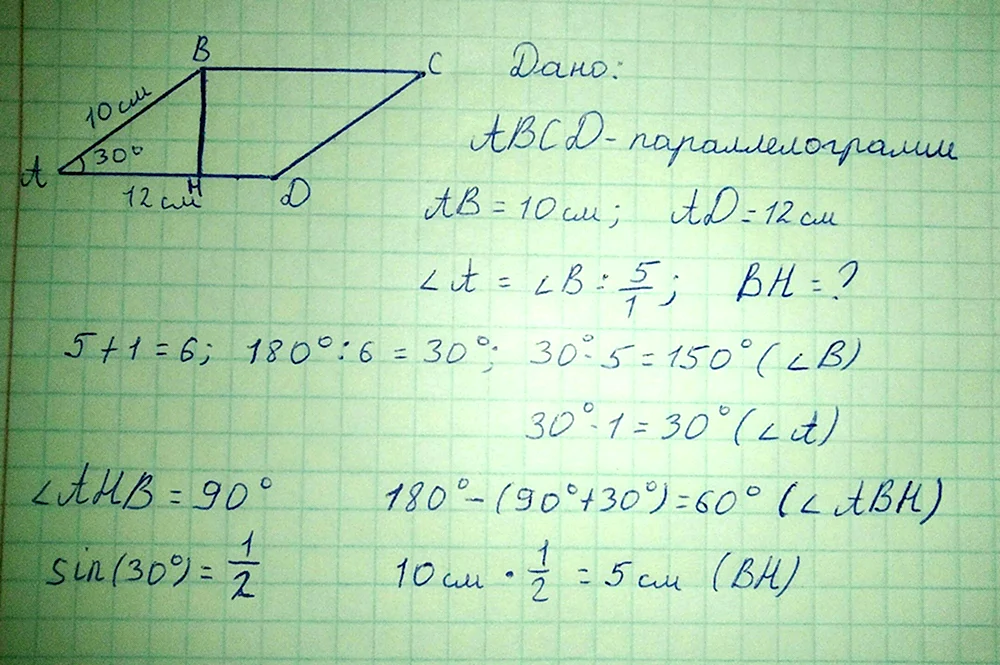 B
C
10 см
A
30°
12 см
H
D
Дано:
ABCD - параллелограмм
AB = 10 см; AD = 12 см
∠A = ∠B : 5/1; BH = ?
5 + 1 = 6; 180° : 6 = 30°; 30° · 5 = 150° (∠B)
30° · 1 = 30° (∠A)
∠AHB = 90° 180° - (90° + 30°) = 60° (∠ABH)
sin(30°) = 1/2 10 см · 1/2 = 5 см (BH)